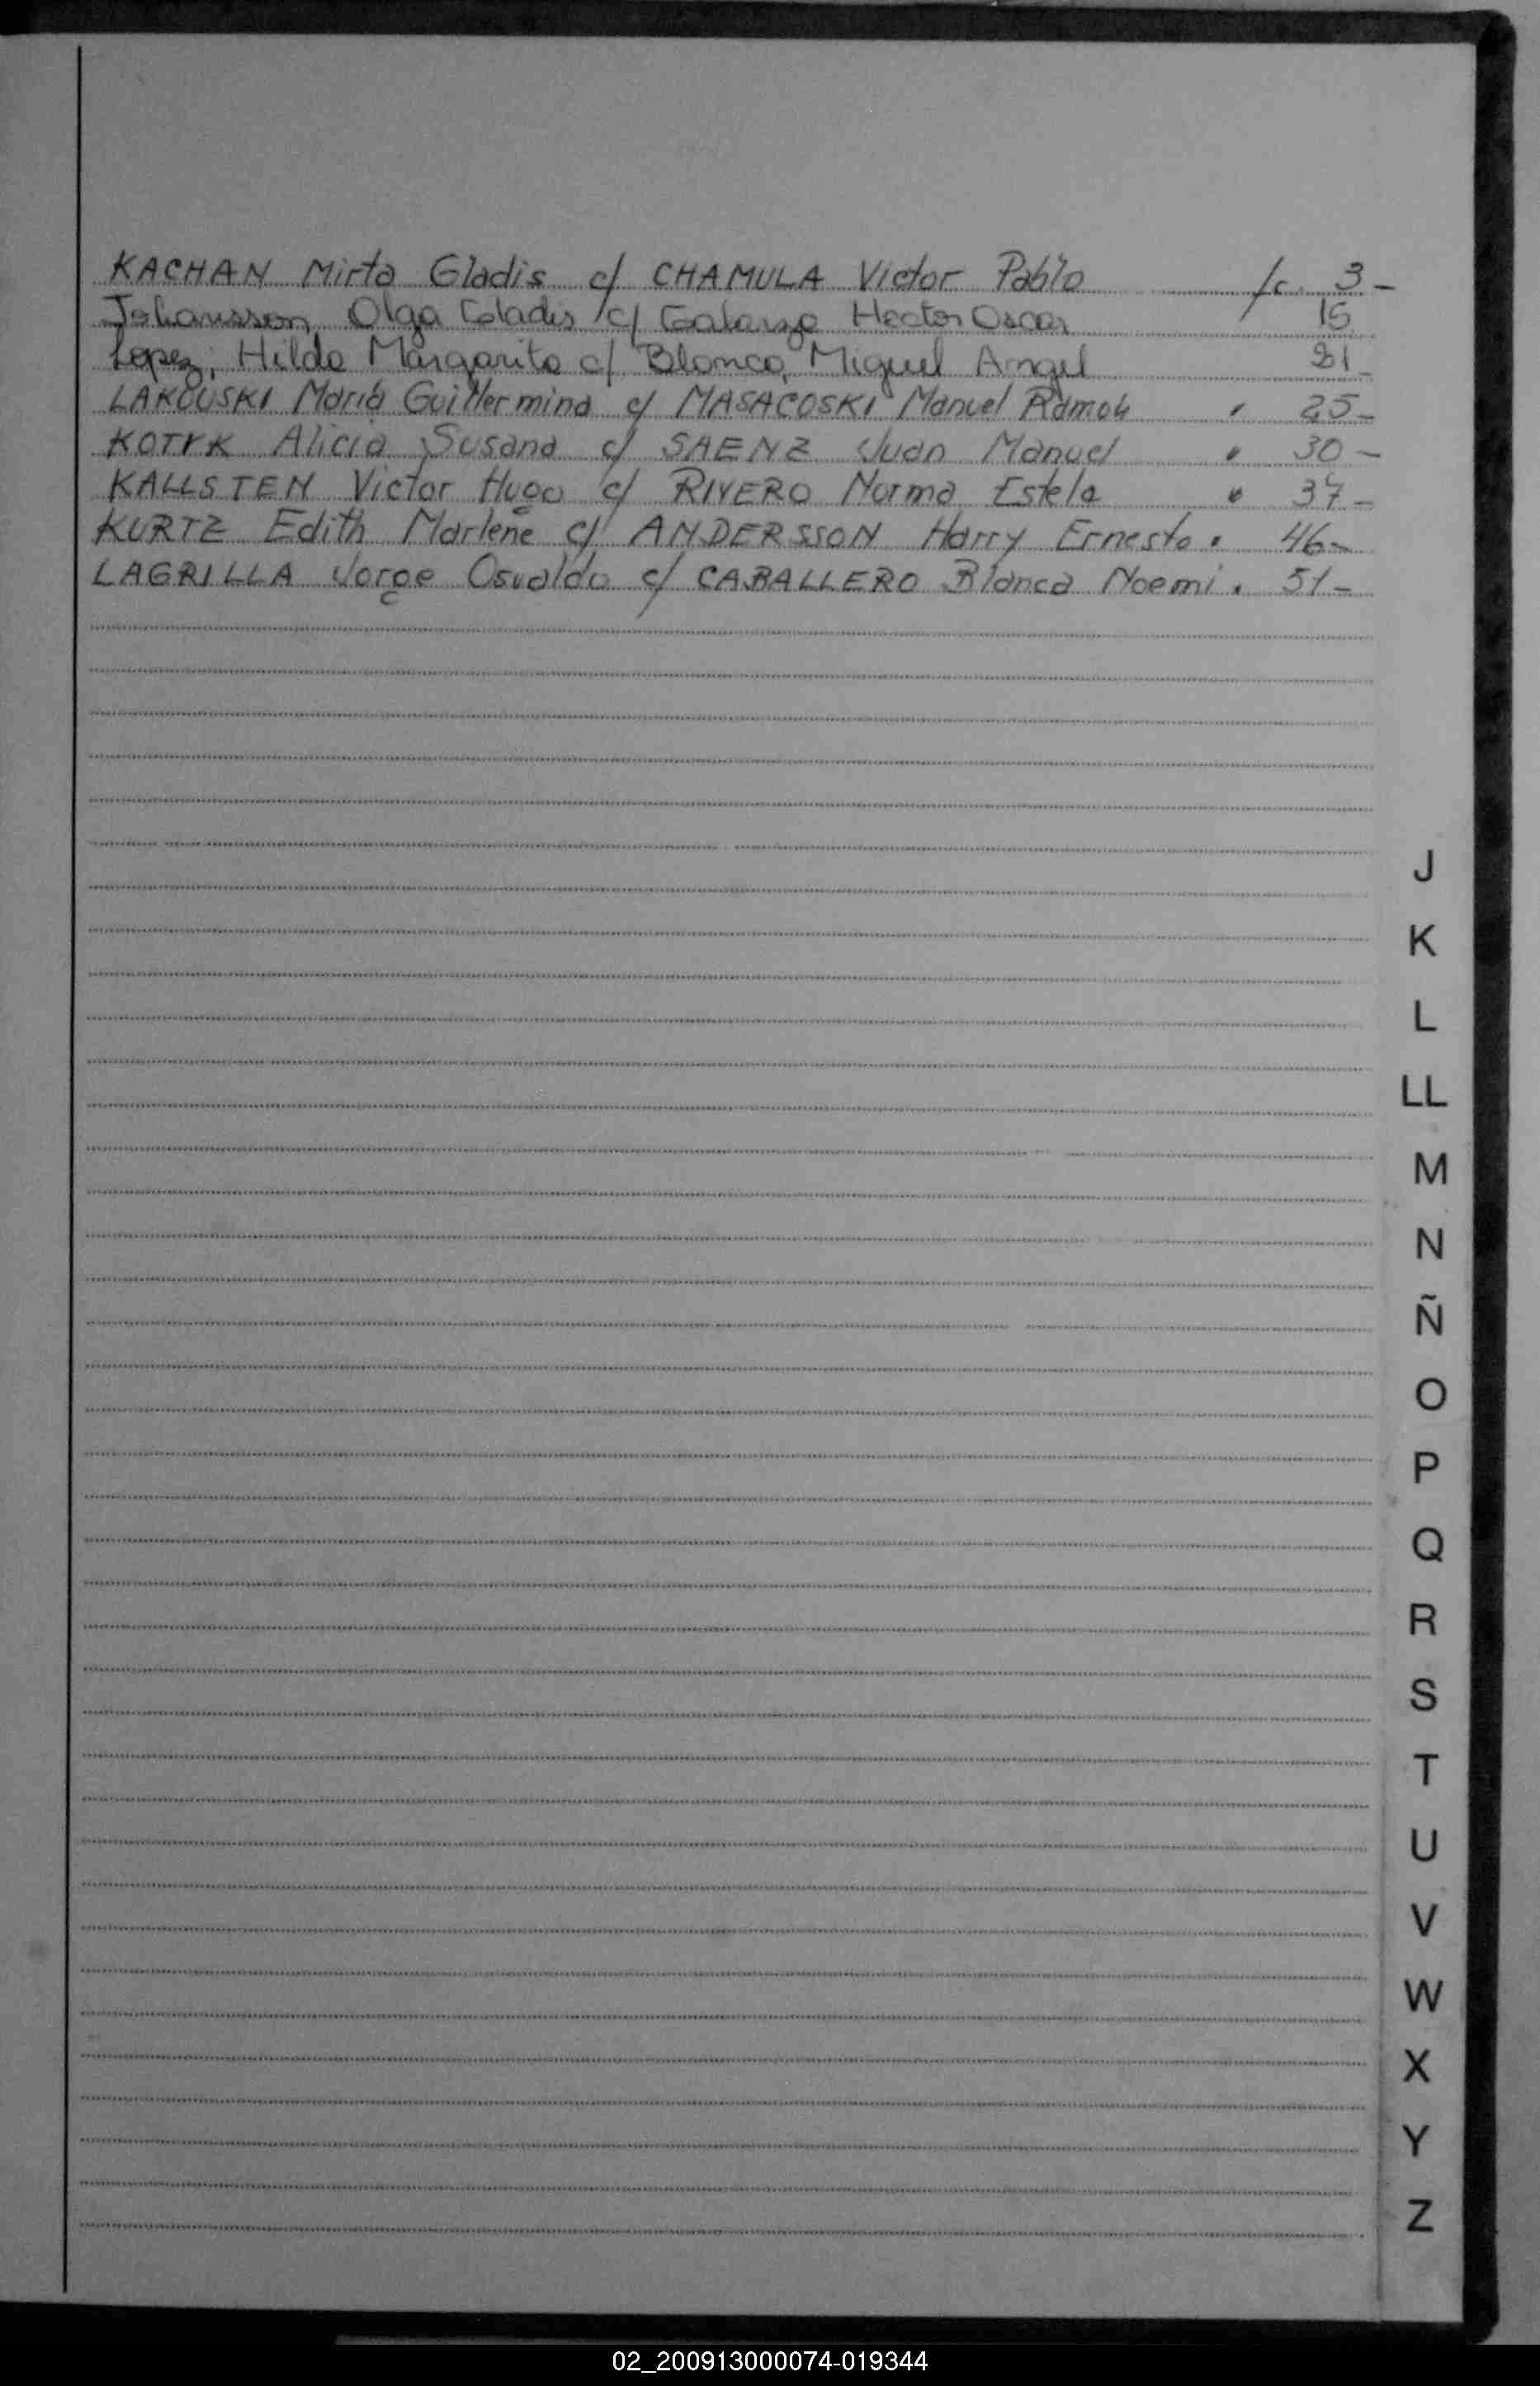 KACHAN Mirta Gladis c/ CHAMULA Victor Pablo /c. 3-
Johansson, Olga Gladis c/ Galarza Hector Oscar 15
Lopez, Hilda Margarita c/ Blanco, Miguel Angel 21-
LAKOUSKI María Guillermina c/ MASACOSKI Manuel Ramon " 25-
KOTYK Alicia Susana c/ SAENZ Juan Manuel " 30-
KALLSTEN Victor Hugo c/ RIVERO Norma Estela " 37-
KURTZ Edith Marlene c/ ANDERSSON Harry Ernesto. 46-
LAGRILLA Jorge Osvaldo c/ CABALLERO Blanca Noemi. 51-
J
K
L
LL
M
N
Ñ
O
P
Q
R
S
T
U
V
W
X
Y
Z
02_200913000074-019344